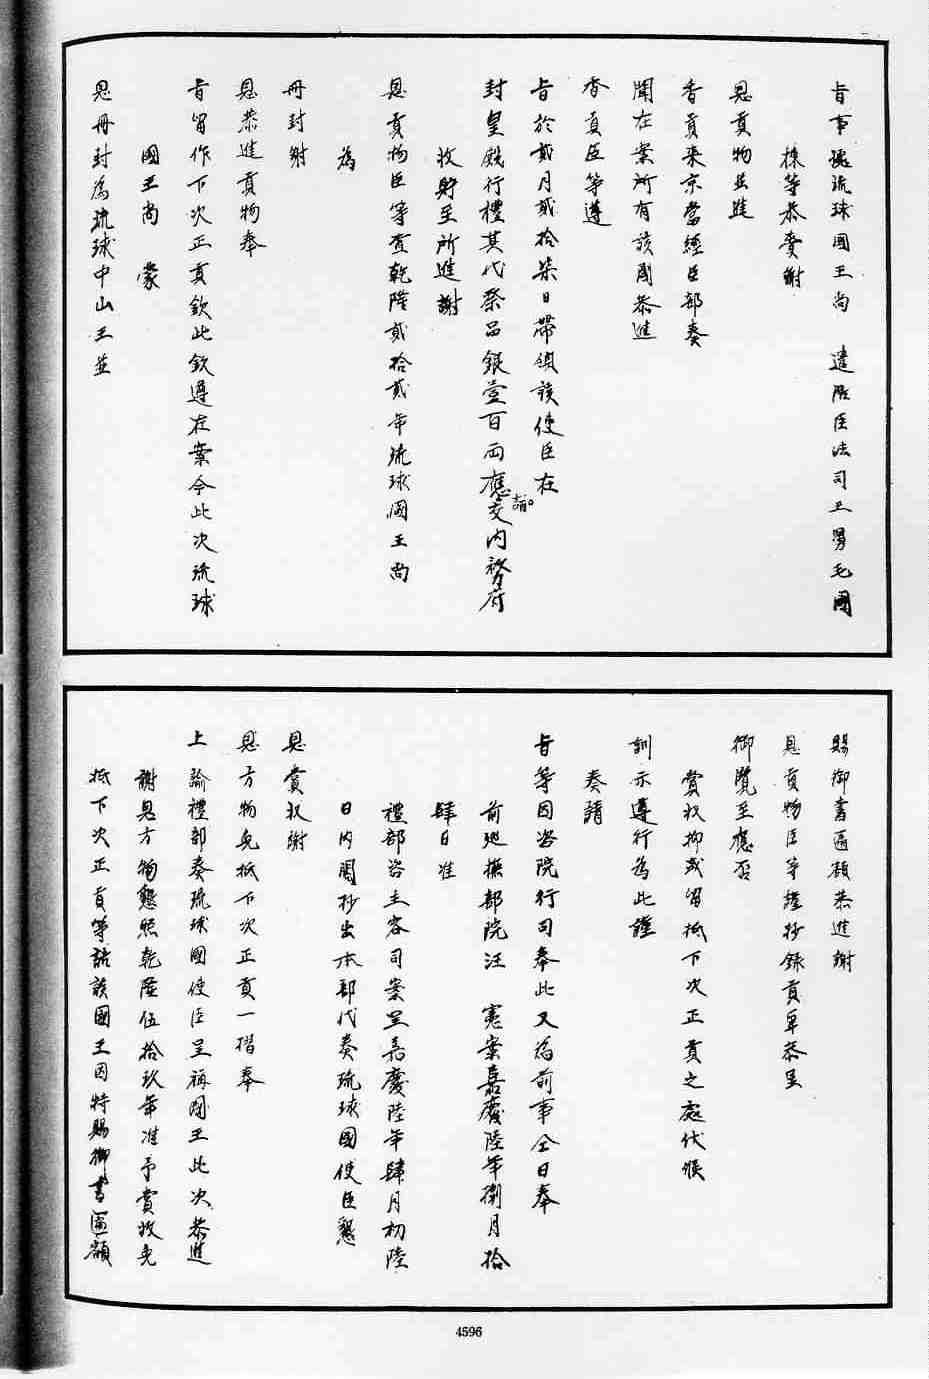 旨事據琉球國王尚　遣陪臣法司王舅毛國
棟等恭賫謝
恩貢物並進
香貢來京當經臣部奏
聞在案所有該國恭進
香貢臣等遵
旨於貳月貳拾柒日帶領該使臣在
封皇殿行禮其代祭品銀壹百兩應請。交內務府
收貯至所進謝
恩貢物臣等查乾隆貳拾貳年琉球國王尚
為
冊封謝
恩恭進貢物奉
旨留作下次正貢欽此欽遵在案今此次琉球
國王尚　蒙
恩冊封為琉球中山王並
賜御書匾額恭進謝
恩貢物臣等謹抄錄貢單恭呈
御覽至應否
賞收抑或留抵下次正貢之處伏候
訓示遵行為此謹
奏請
旨等因咨院行司奉此又為前事仝日奉
前廵撫部院汪　憲案嘉慶陸年月拾
肆日准
禮部咨主客司案呈嘉慶陸年肆月初陸
日內閣抄出本部代奏琉球國使臣懇
恩賞收謝
恩方物免抵下次正貢一摺奉
上諭禮部奏琉球國使臣呈稱國王此次恭進
謝恩方物懇照乾隆伍拾玖年准予賞收免
抵下次正貢等語該國王因特賜御書匾額
4596